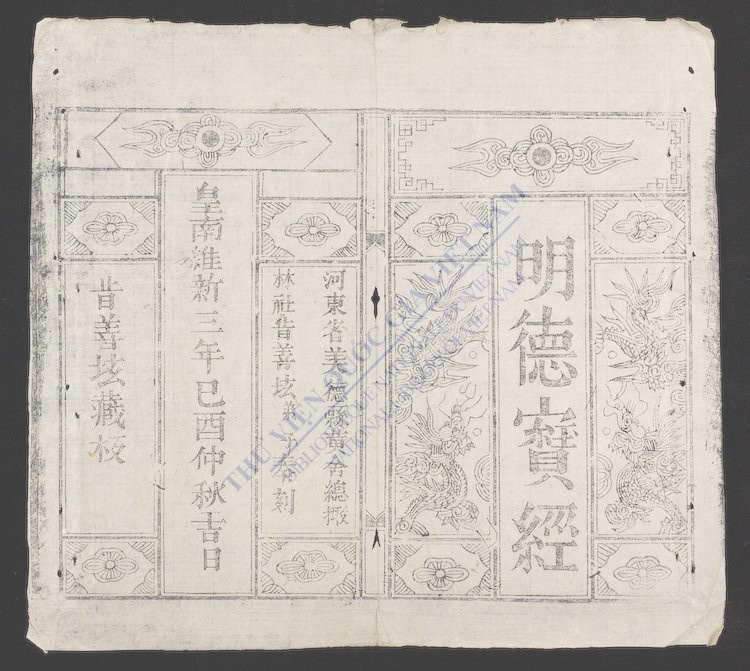 明德寶經
河東省美德縣黃舍總橛
林社皆善坛弟子奉刻
皇南維新三年己酉仲秋吉日
皆善坛藏板
THƯ VIỆN QUỐC GIA VIỆT NAM
NATIONAL LIBRARY OF VIETNAM